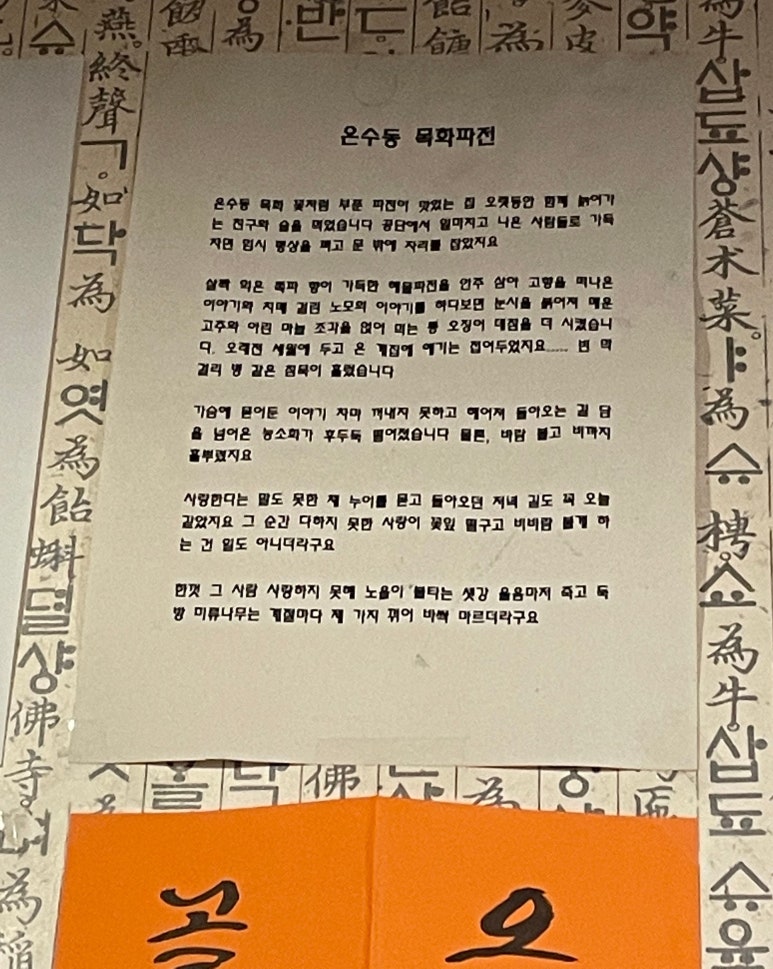 온수동 목화파전
온수동 목화 꽃처럼 부푼 파전이 맛있는 집 오랫동안 함께 늙어가
는 친구와 술을 먹었습니다 공단에서 일마치고 나온 사람들로 가득
차면 임시 평상을 펴고 문 밖에 자리를 잡았지요
살짝 익은 쪽파 향이 가득한 해물파전을 안주 삼아 고향을 떠나온
이야기와 치매 걸린 노모의 이야기를 하다보면 눈시울 붉어져 매운
고추와 아린 마늘 조각을 얹어 미는 통 오징어 대접을 더 시켰습니
다. 오래전 세월에 두고 온 계집애 얘기는 접어두었지요...... 빈 막
걸리 병 같은 침묵이 흘렀습니다
가슴에 묻어둔 이야기 차마 꺼내지 못하고 헤어져 돌아오는 길 담
을 넘어온 능소화가 후두둑 떨어졌습니다 물론, 바람 불고 비까지
흩뿌렸지요
사랑한다는 말도 못한 채 누이를 묻고 돌아오던 저녁 길도 꼭 오늘
같았지요 그 순간 다하지 못한 사랑이 꽃잎 떨구고 비바람 불게 하
는 건 일도 아니더라구요
한껏 그 사람 사랑하지 못해 노을이 불타는 샛강 울음마저 죽고 둑
방 미류나무는 계절마다 제 가지 꺾어 바싹 마르더라구요
燕
終
聲
ㄱ
如
닥
為
如
엿
為
飴
蝌
섕
佛
寺
為
稻
為
牛
삽
됴
샹
蒼
朮
菜
為
쇼
為
牛
삽
됴
佛
오